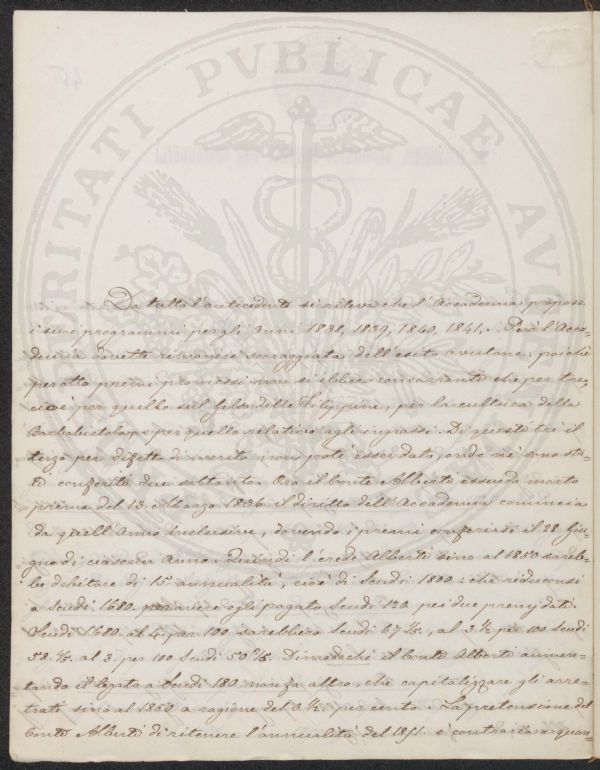 PROSPERITATI PVBLICAE AVGENDAE
Da tutto l'antecedente si rileva che l'Accademia propose
i suoi programmi per gli Anni 1838, 1839, 1840, 1841. Però l'Acca-
demia dovette rimanere scoraggiata dell'esito avutone, poichè
per otto premi promessi non si ebbero concorrenti che per tre,
cioè per quello sul gelso delle Filippine, per la cultura della
Barbabietola, e per quello relativo agli ingrassi. Di questi tre il
terzo per difetto di merito non potè esser dato, onde ne sono sta-
ti conferiti due soltanto. Ora il Conte Alberti essendo morto
prima del 13. Marzo 1836 il diritto dell'Accademia comincia
da quell'Anno inclusive, dovendo i premi conferirsi il 28 Giu-
gno di ciascun Anno. Quindi l'erede Alberti sino al 1850 sareb-
be debitore di 15 annualità, cioè di Scudi 1800: che riduconsi
a Scudi 1680. per avere egli pagato Scudi 120 pei due premj dati.
Scudi 1680 al 4. per 100 sarebbero Scudi 67 1/5, al 3 1/2 per 100 Scudi
58 4/5. al 3. per 100 Scudi 50 2/5. Dimodochè il Conte Alberti aumen-
tando il legato a Scudi 180 non fa altro, che capitalizzare gli arre-
trati sino al 1850 a ragione del 3 1/2 per cento. La pretensione del
Conte Alberti di ritenere l'annualità del 1851 è contraria a quan-